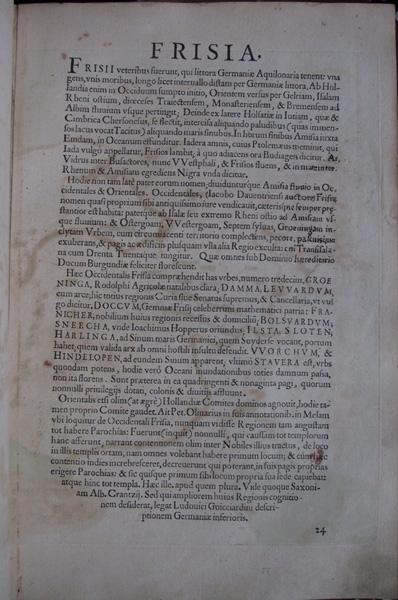 FRISIA.
FRISII veteribus fuerunt, qui littora Germaniæ Aquilonaria tenent: vna
gens, vnis moribus, longo licet interuallo distans per Germaniæ littora. Ab Hol-
landia enim in Occiduum sumpto initio, Orientem versus per Gelriam, Isalam
Rheni ostium, dioceses Traiectensem, Monasteriensem, & Bremensem ad
Albim fluuium vsque pertingit; Deinde ex latere Holsatiæ in Iutiam, quæ &
Cimbrica Chersonesus, se flectit, intercisa aliquando paludibus (quas immen-
sos lacus vocat Tacitus) aliquando maris sinubus. In horum finibus Amisia iuxta
Emdam, in Oceanum effunditur. Iadera amnis, cuius Ptolemæus meminit, qui
Iada vulgo appellatur, Frisios lambit, à quo adiacens ora Budiages dicitur. At
Vidrus inter Busactores, nunc VVestphali, & Frisios fluens, & in mare inter
Rhenum & Amisiam egrediens Nigra vnda dicitur.
Hodie non tam latè patet eorum nomen, diuidunturque Amisia fluuio in Oc-
cidentales & Orientales. Occidentales, (Iacobo Dauentriensi auctore) Frisiæ
nomen quasi proprium sibi antiquissimo iure vendicauit, ceterisque semper pre-
stantior est habita: patetque ab Isalæ seu extremo Rheni ostio ad Amisiam vs-
que fluuium: & Ostergoam, VVestergoam, Septem syluas, Groeningam in-
clytam Vrbem, cum circumiacenti territorio complectens, pecore, pascuisque
exuberans, & pagis ac ædificiis plusquam vlla alia Regio exculta: cui Transisala-
na cum Drenta Tuentaque iungitur. Quæ omnes sub Dominio hæreditario
Ducum Burgundiæ feliciter florescunt.
Hæc Occidentalis Frisia compræhendit has vrbes, numero tredecim, GROE
NINGA, Rodolphi Agricolæ natalibus clara, DAMMA, LEVVARDVM,
cum arce, hic totius regionis Curia siue Senatus supremus, & Cancellaria, vt vul
go dicitur. DOCCVM, Gemmæ Frisij celeberrimi mathematici patria: FRA-
NICHER, nobilium huius regionis recessus & domicilium, BOLSVARDVM;
SNEECHA, vnde Ioachimus Hopperus oriundus, ILSTA, SLOTEN,
HARLINGA, ad Sinum maris Germanici, quem Suyderse vocant, portum
habet, quem valida arx ab omni hostili insultu defendit. VVORCHVM, &
HINDELOPEN, ad eundem Sinum apparent, vltimò STAVERA est, vrbs
quondam potens, hodie verò Oceani inundationibus toties damnum passa,
non ita florens. Sunt præterea in ea quadringenti & nonaginta pagi, quorum
nonnulli privilegijs dotati, colonis & diuitijs affluunt.
Orientalis etsi olim (at ægrè) Hollandiæ Comites dominos agnouit, hodie ta-
men proprio Comite gaudet. Ait Pet. Oliuarius in suis annotationib. in Melam
vbi loquitur de Occidentali Frisia, nunquam vidisse Regionem tam angustam
tot habere Parochias: Fuerunt (inquit) nonnulli, qui caussam tot templorum
hanc afferunt, narrant contentionem olim inter Nobiles illius tractus, de loco
in illis templis ortam, nam omnes volebant habere primum locum; & cum ista
contentio indies increbresceret, decreuerunt qui poterant, in suis pagis proprias
erigere Parochias: & sic quisque primum sibi locum propria sua sede capiebat
atque hinc tot templa. Hæc ille. apud quem plura. Vide quoque Saxoni-
am Alb. Crantzij. Sed qui ampliorem huius Regionis cognitio-
nem desiderat, legat Ludouici Guicciardini descri-
ptionem Germaniæ inferioris.
24